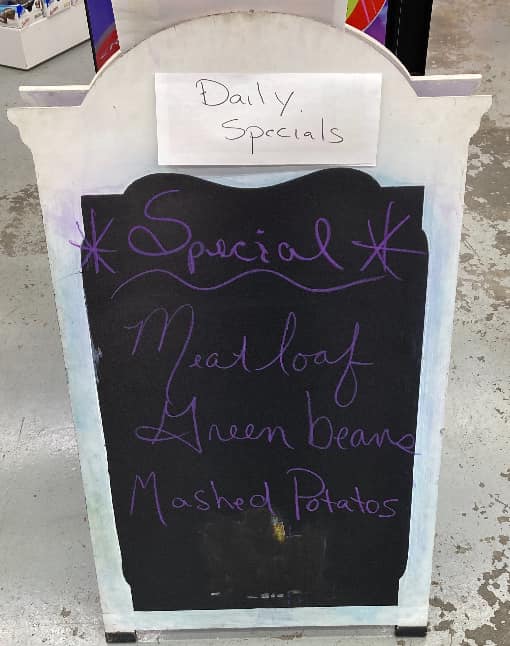 Daily
Specials
* Special *
Meatloaf
Green beans
Mashed Potatos